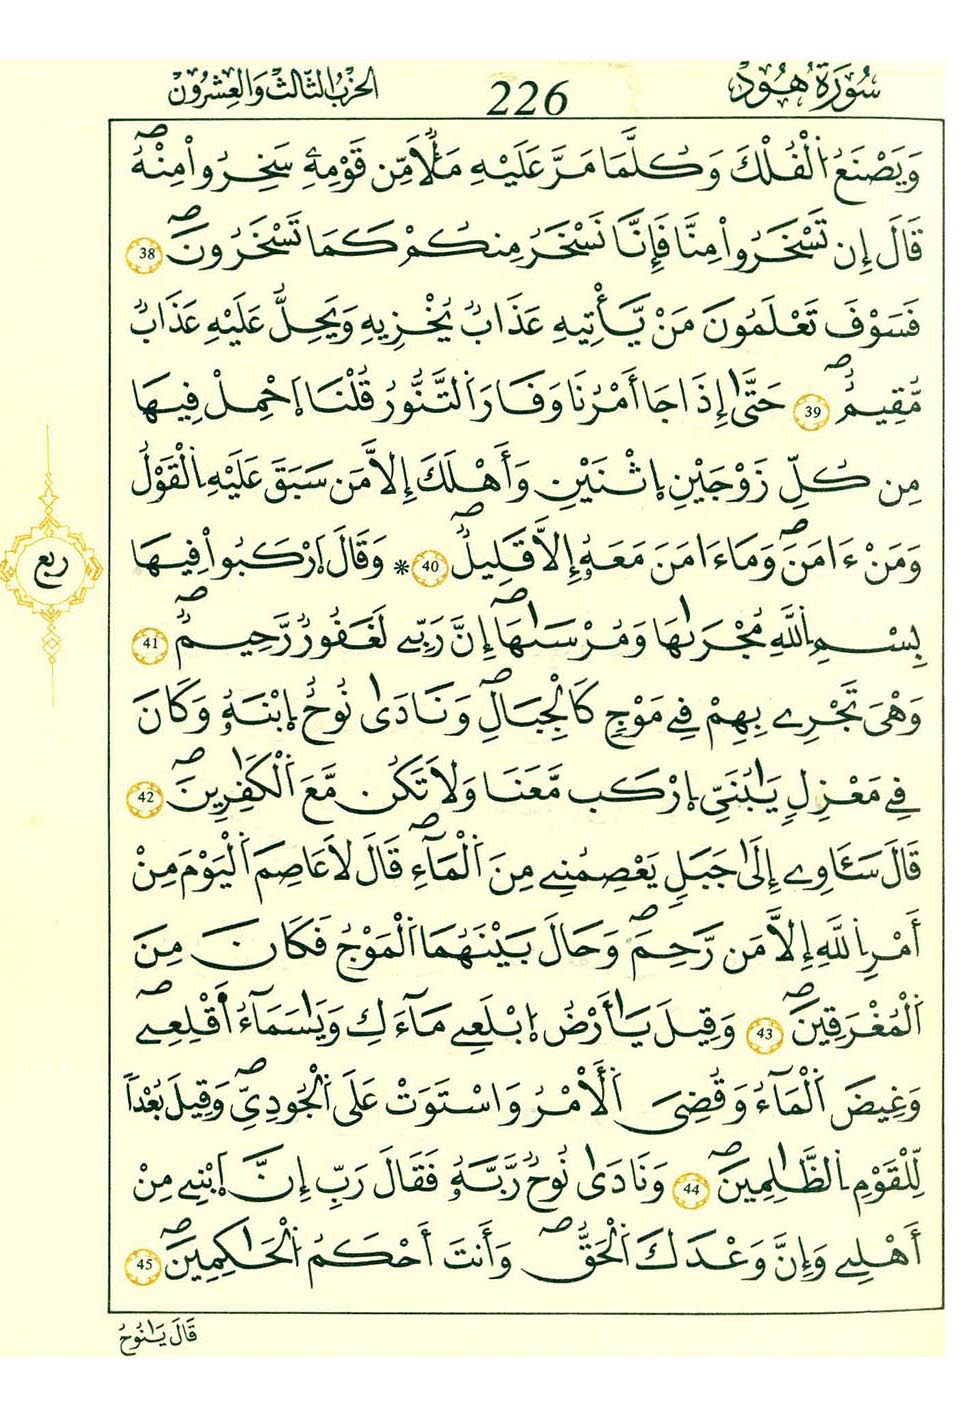 سُورَةُ هُودٍ 226 الحِزْبُ الثَّالِثُ وَالعِشْرُونَ
وَيَصْنَعُ اُ۬لْفُلْكَ وَكُلَّمَا مَرَّ عَلَيْهِ مَلَأٞ مِّن قَوْمِهِۦ سَخِرُواْ مِنْهُۖ
قَالَ إِن تَسْخَرُواْ مِنَّا فَإِنَّا نَسْخَرُ مِنكُمْ كَمَا تَسْخَرُونَۖ 38
فَسَوْفَ تَعْلَمُونَ مَنْ يَّأْتِيهِ عَذَابٞ يُخْزِيهِ وَيَحِلُّ عَلَيْهِ عَذَابٞ
مُّقِيمٌۖ 39 حَتَّىٰ إِذَا جَا أَمْرُنَا وَفَارَ اَ۬لتَّنُّورُ قُلْنَا اَ۪حْمِلْ فِيهَا
مِن كُلِّ زَوْجَيْنِ اِ۪ثْنَيْنِ وَأَهْلَكَ إِلَّا مَن سَبَقَ عَلَيْهِ اِ۬لْقَوْلُ
وَمَنْ ءَامَنَۖ وَمَا ءَامَنَ مَعَهُۥ إِلَّا قَلِيلٞۖ 40 * وَقَالَ اَ۪رْكَبُواْ فِيهَا
بِسْمِ اِ۬للَّهِ مُجْر۪ىٰهَا وَمُرْسَىٰهَاۖ إِنَّ رَبِّے لَغَفُورٞ رَّحِيمٞۖ 41
وَهْيَ تَجْرِے بِهِمْ فِے مَوْجٖ كَالْجِبَالِۖ وَنَادَىٰ نُوحٌ اِ۪بْنَهُۥ وَكَانَ
فِے مَعْزِلٖ يَٰبُنَيِّ اِ۪رْكَب مَّعَنَا وَلَا تَكُن مَّعَ اَ۬لْكَٰفِرِينَۖ 42
قَالَ سَـَٔاوِے إِلَىٰ جَبَلٖ يَعْصِمُنِے مِنَ اَ۬لْمَآءِۖ قَالَ لَا عَاصِمَ اَ۬لْيَوْمَ مِنْ
أَمْرِ اِ۬للَّهِ إِلَّا مَن رَّحِمَۖ وَحَالَ بَيْنَهُمَا اَ۬لْمَوْجُ فَكَانَ مِنَ
اَ۬لْمُغْرَقِينَۖ 43 وَقِيلَ يَٰأَرْضُ اُ۪بْلَعِے مَآءَكِ وَيَٰسَمَآءُ اَقْلِعِےۖ
وَغِيضَ اَ۬لْمَآءُ وَقُضِيَ اَ۬لْأَمْرُ وَاسْتَوَتْ عَلَى اَ۬لْجُودِيِّۖ وَقِيلَ بُعْداٗ
لِّلْقَوْمِ اِ۬لظَّٰلِمِينَۖ 44 وَنَادَىٰ نُوحٞ رَّبَّهُۥ فَقَالَ رَبِّ إِنَّ اَ۪بْنِے مِنْ
أَهْلِے وَإِنَّ وَعْدَكَ اَ۬لْحَقُّۖ وَأَنتَ أَحْكَمُ اُ۬لْحَٰكِمِينَۖ 45
ربع
قَالَ يَٰنُوحُ